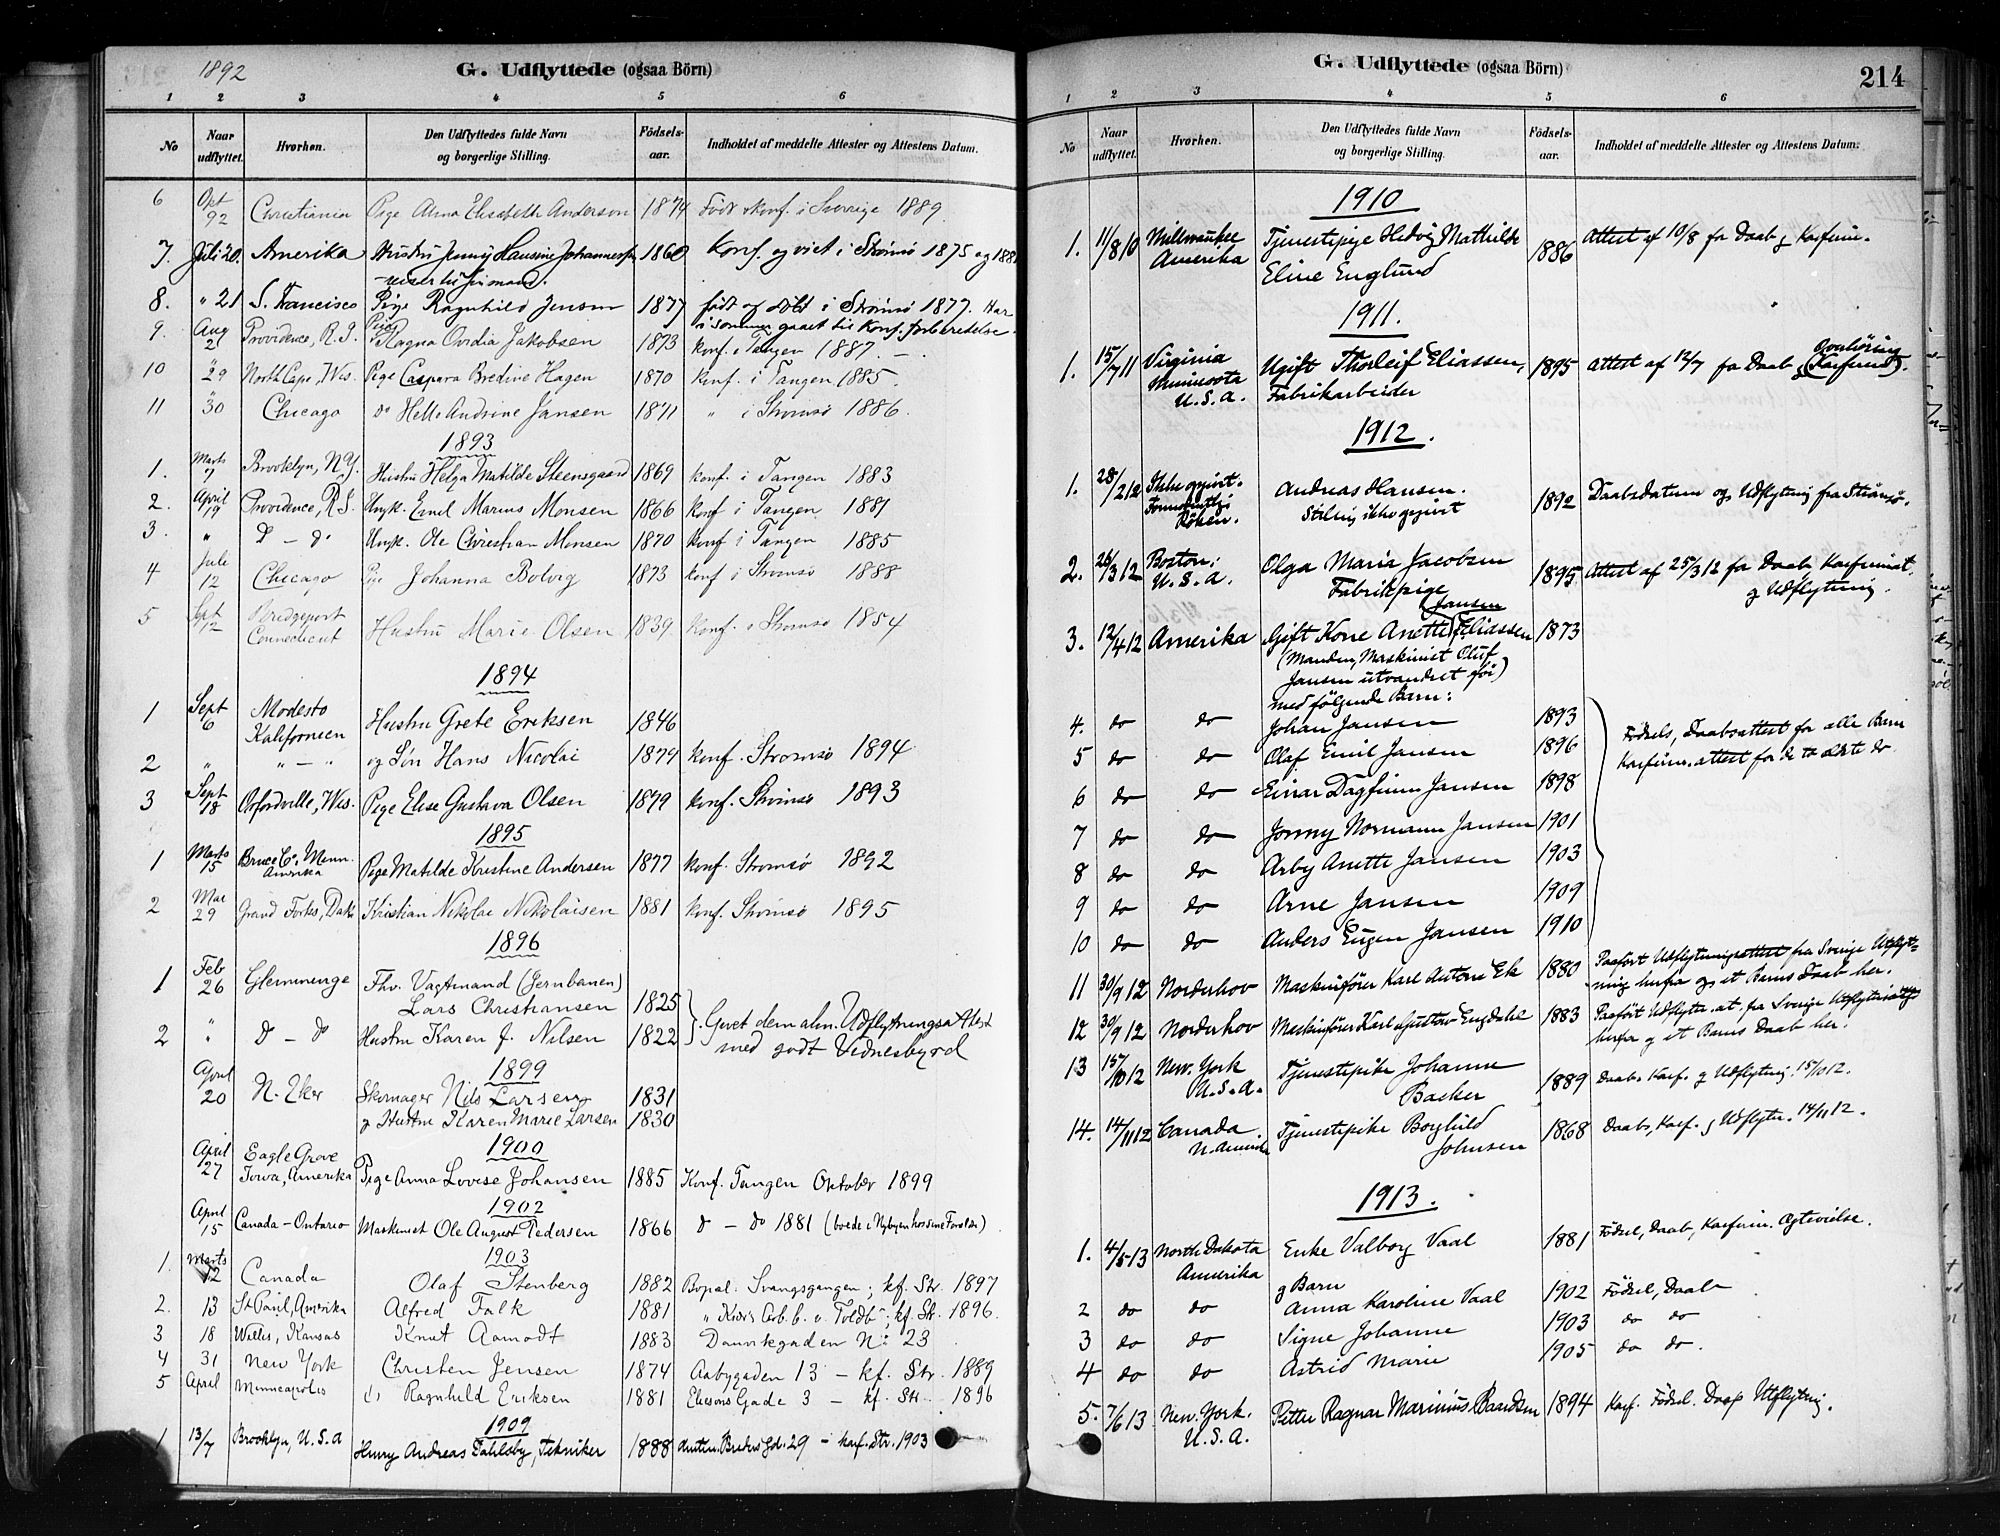 1892
G. Udflyttede (ogsaa Börn)
1 2 3 4 5 6
No
Naar udflyttet.
Hvorhen.
Den Udflyttedes fulde Navn og borgerlige Stilling.
Födsels-aar.
Indholdet af meddelte Attester og Attestens Datum.
6 92 Christiania Pige Anna Elisabeth Anderson 1874 Født & konf. i Sverrige 1889.
7. Juli 20. Amerika Hustru Jenny Hansine Johannesen 1860 Konf. og viet i Strømsø 1875 og 188
reiser til sin mand.
8. " 21 S. Francisco Pige Ragnhild Jensen 1877 født og døbt i Strømsø 1877. Har
i sommer gaaet til Konf. forberedelse.
9. Aug 21 Providence, R.I. Pige Ragna Ovidia Jakobsen 1873 konf. i Tangen 1887. –
10 " 29 North Cape, Wis. Pige Caspara Bredine Hagen 1870 konf. i Tangen 1885.
11 " 30 Chicago do Andrine Jansen 1871 " i Strømsø 1886.
1893
1. Marts 7 Brooklyn, N.Y. Hustru Helga Matilde Steensgaard 1869 konf. i Tangen 1883
2. April 19 Providence, R.I. Ungk. Emil Marius Monsen 1866 konf i Tangen 1881
3. " do – do Ungk. Ole Christian Monsen 1870 konf i Tangen 1885
4 Juli 12 Chicago Pige Johanna Bolvig 1873 konf i Strømsø 1888
5 Sept 12 Bredgeport Connecticut Hustru Marie Olsen 1839 konf. i Strømsø 1854
1894
1 Sept 6 Modesto Kalifornien Hustru Grete Eriksen 1846
2 " " – " og Søn Hans Nicolai 1879 konf. Strømsø 1894
3 Sept 18 Orfordville, Wis. Pige Elise Gustava Olsen 1879 konf. Strømsø 1893
1895
1 Marts 15 Bruce Co. Minn. Amerika Pige Matilde Kristine Andersen 1877 konf. Strømsø 1892
2 Mai 29 Grand Forks, Dak. Kristian Nikolai Nikolaisen 1881 konf. Strømsø 1895
1896
1 Feb 26 Glemmenge Fhv. Vagtmand (Jernbanen)
Lars Christiansen 1825
2 " do – do Hustru Karen J. Nilsen 1822
Givet dem alm. Udflytningsattest
med godt Vidnesbyrd
1899
April 20 N. Eker Skomager Nils Larsen 1831
og Hustru Karen Marie Larsen 1830
1900
April 27 Eagle Grove Iowa, Amerika Pige Anna Lovise Johansen 1885 Konf. Tangen Oktober 1899
1902
April 15 Canada – Ontario Maskinist Ole August Pedersen 1866 do – do 1881 (boede i Nybyen hos sine Forældre)
1903
1. Marts 12 Canada Olaf Stenberg 1882 Bopæl. Svangsgangen; kf. Str. 1897
2. 13 St Paul, Amerika Alfred Falk 1881 kf. Str. 1896.
3 18 Willis, Kansas Knut Aamodt 1883 Danvikgaden No 23
4 31 New York Christen Jensen 1874 Aabygaden 13 – kf. Str. 1889
5 April Minneapolis Ragnhild Eriksen 1881 Gade 3 – kf. Str. 1896
1909
1 13/7 Brooklyn, U.S.A Henry Andreas Dahlsby, Tekniker 1888 29 – konf. Str. 1903
G. Udflyttede (ogsaa Börn)
214
1 2 3 4 5 6
No
Naar udflyttet.
Hvorhen.
Den Udflyttedes fulde Navn og borgerlige Stilling.
Födsels-aar.
Indholdet af meddelte Attester og Attestens Datum.
1910
1. 11/8 10 Millwaukee Amerika Tjenestepige Hedvig Mathilde
Eline Englund 1886 Attest af 10/8 for Daab og Konfirm.
1911.
1. 15/7 11 Virginia Minnesota U.S.A. Ugift Thorleif Eliassen,
Fabrikarbeider 1895 Attest af 12/7 for Daab
1912.
1. 28/2 12 Ikke opgivet. Formodentlig Røken. Andreas Hansen.
Stilling ikke opgivet 1892 Daabsdatum og Udflytning fra Strømsø.
2. 26/3 12 Boston; U.S.A. Olga Maria Jacobsen
Fabrikpige 1895 Attest af 25/3 12 for Daab, Konfirmat.
og Udflytning.
3. 12/4 12 Amerika Gift Kone Anette (Jansen) Eliassen 1873
(Manden, Maskinist Oluf
Jansen utvandret før)
med følgende Barn:
4. do do Johan Jansen 1893
5 do do Olaf Emil Jansen 1896
6 do do Einar Dagfinn Jansen 1898
7 do do Jonny Normann Jansen 1901
8 do do Arby Anette Jansen 1903
9 do do Arne Jansen 1909
10 do do Anders Eugen Jansen 1910
Fødsels, Daabsattest for alle Barn
Konfirm. attest for de to ældste do
11 30/9 12 Norderhov Maskinfører Karl Antone Ek 1880 Paaført Udflytningsattest fra Sverige Utflyt-
ning herfra og et Barns Daab her.
12 30/9 12 Norderhov Maskinfører Karl Gustav Engdahl 1883 Paaført Udflytn. at. fra Sverige
herfra og et Barns Daab her.
13 15/10 12 New York U.S.A. Tjenestepike Johanne
Backer 1889 Daabs, Konf. og Udflytning. 15/10 12.
14. 14/11 12 Canada N. Amerika Tjenestepike Borghild
Johnsen 1868 Daab, Konf. og Udflytn. 14/11 12.
1913.
1. 4/5 13 North Dakota Amerika Enke Valborg Vaal 1881 Fødsel, Daab, Konfirm. Ægtevielse.
og Barn
2 do do Anna Karoline Vaal 1902 Fødsel, Daab
3 do do Signe Johanne 1903 do do
4 do do Astrid Marie 1905 do do.
5. 7/6 13 New. York. U.S.A. Petter Ragnar Marinius 1894 Konf. Fødsel. Daab Utflytning.